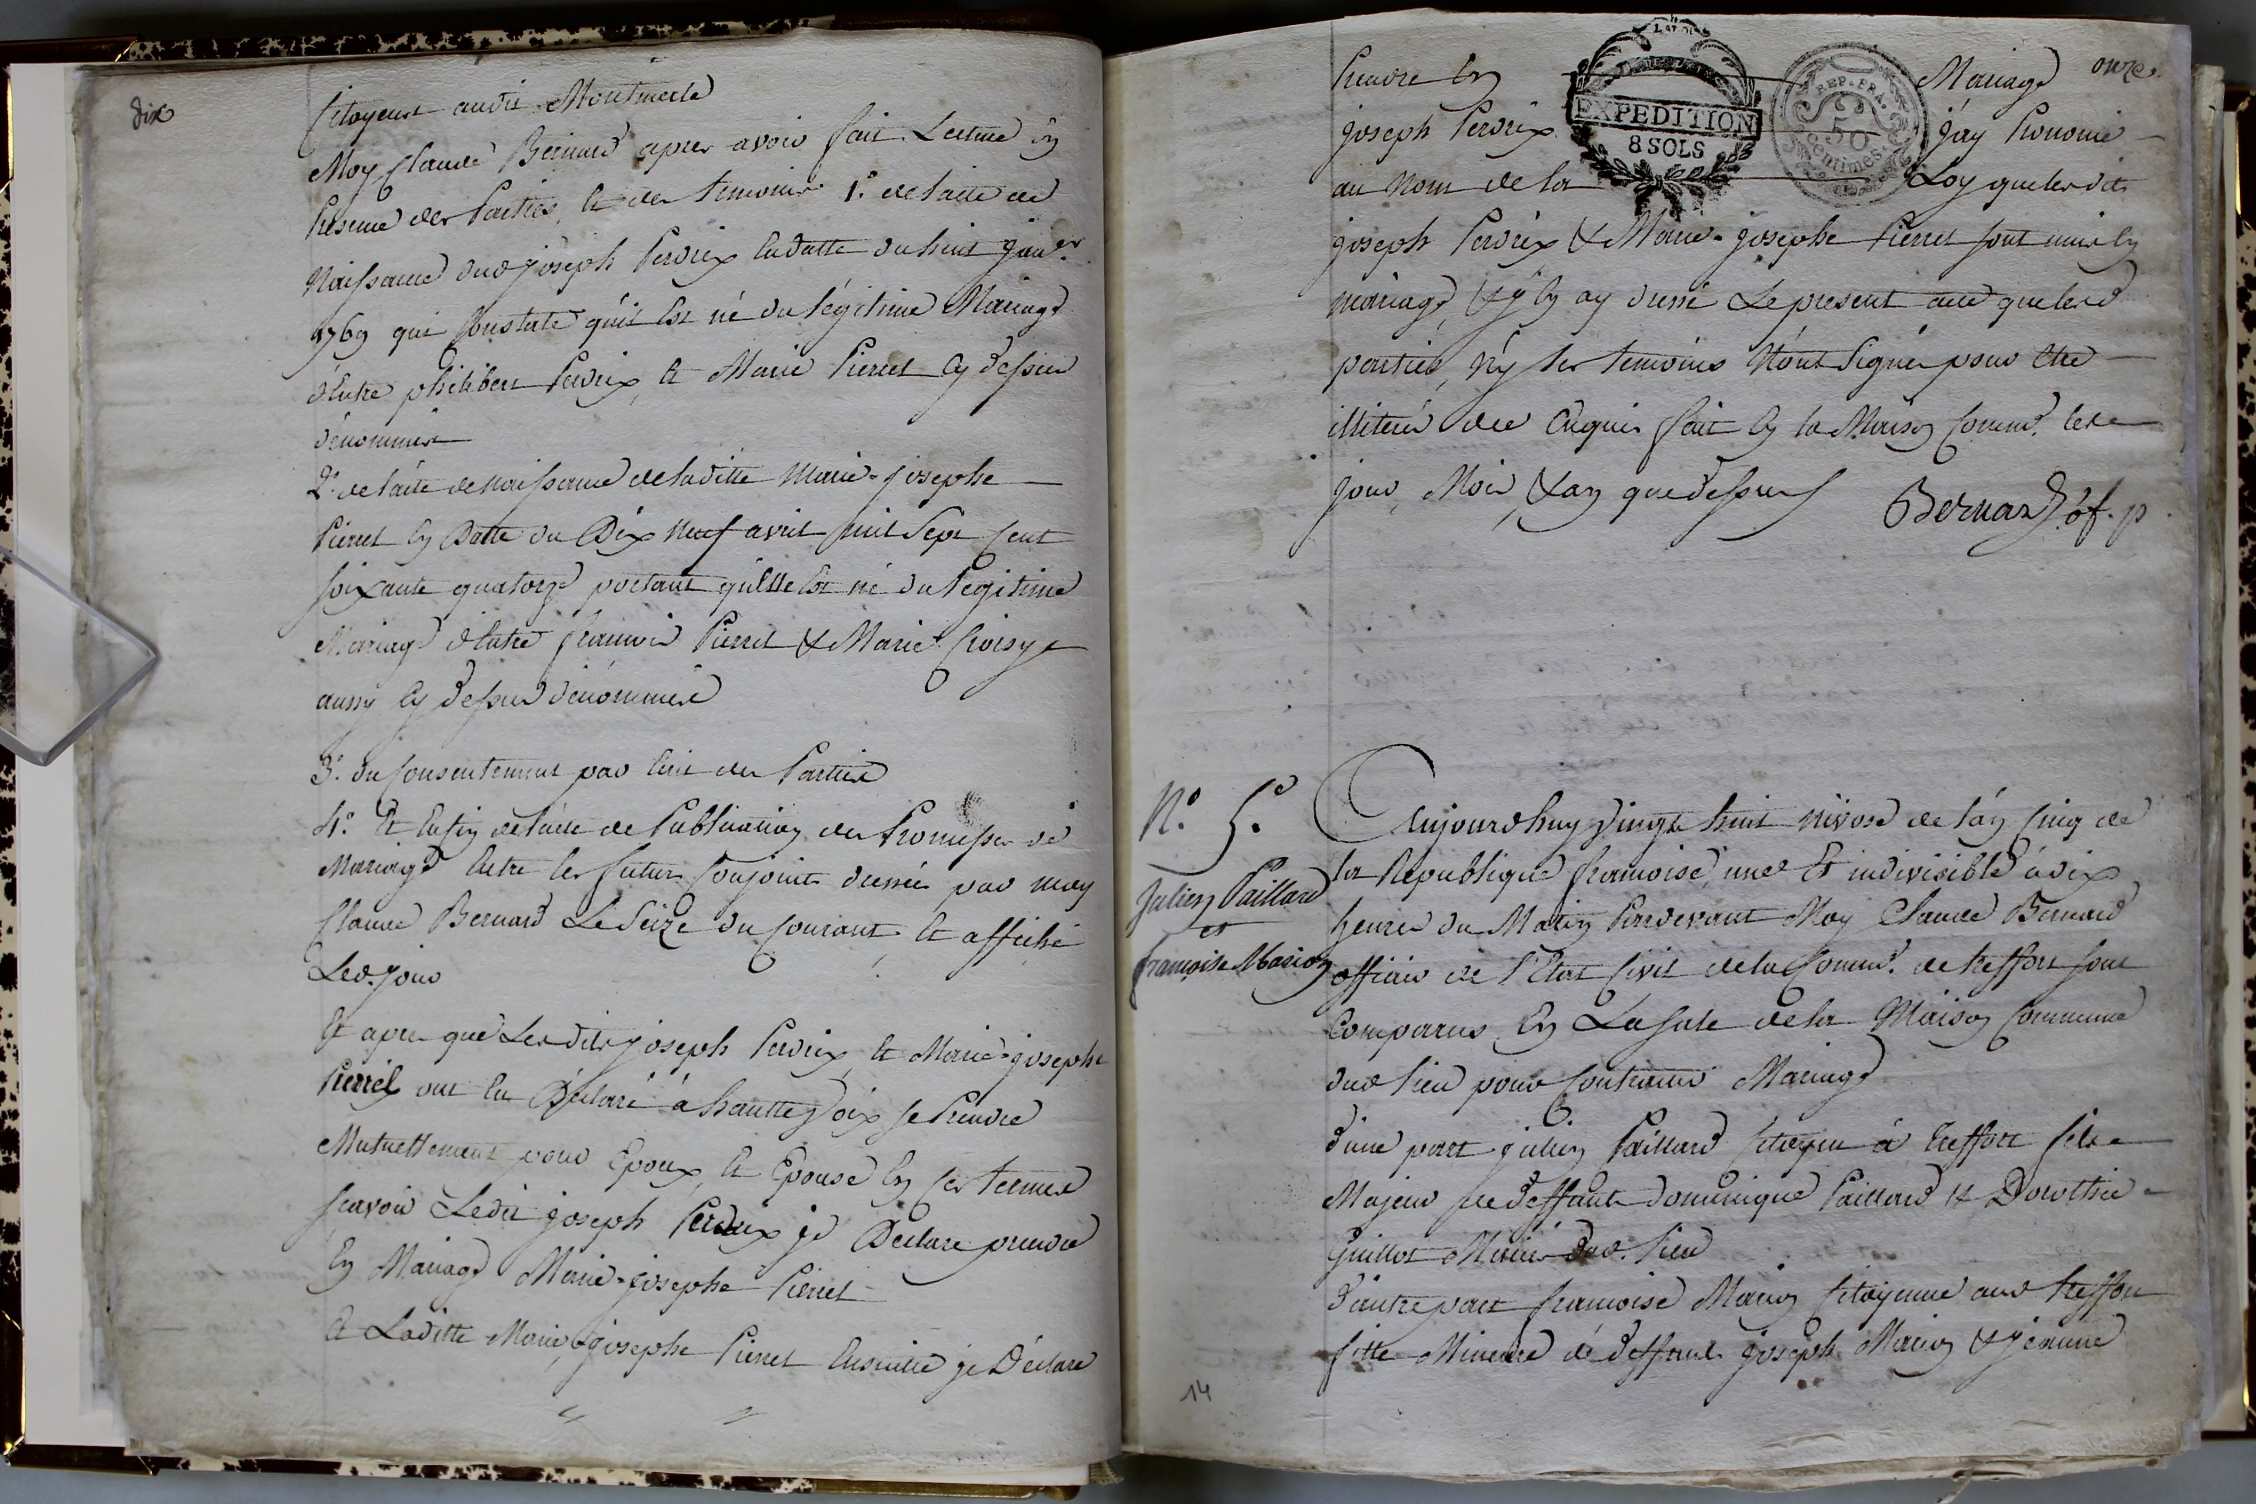 dix
Citoyens audit Montmerle
Moy Claude Bernard apres avoir fait Lecture En
Presence des Parties, et des temoins 1.° de l'acte de
Naissance dud joseph Perdrix En datte du huit janer
1769 qui Constate qu'il Est né du légitime Mariage
d'Entre philibert Perdrix, et Marie Pierret Cy dessus
dénommés
2.° de l'acte de naissance de laditte Marie-josephe
Pierret En Datte du Dix neuf avril mil Sept Cent
soixante quatorze portant qu'Elle Est né du légitime
Mariage d'Entre françois Pierret & Marie Croisy
aussy Cy dessus dénommés
3.° du Consentement par Ecrit des Parties
4.° Et Enfin de l'acte de Publication des Promesses de
Mariage Entre les futurs Conjoints dressée par moy
Claude Bernard Le Seize du Courant, et affiché
Led. jour
Et apres que Lesdits joseph Perdrix, et Marie-josephe
Pierret ont Eu Déclaré à hautte Voix se Prendre
Mutuellement pour Epoux, et Epouse En ces termes
scavoir Ledit joseph Perdrix je Déclare prendre
En Mariage Marie-josephe Pierret
Et Laditte Marie-josephe Pierret Ensuitte je Déclare
onze
Prendre En Mariage
joseph Perdrix j'ay Prononcé
au Nom de la Loy que lesdits
EXPEDITION
8 SOLS
REP. FRA.
50
centimes
joseph Perdrix & Marie-josephe Pierret sont unis En
mariage, & j'En ay dressé Le present acte que lesd
parties, n'y les temoins N'ont Signés pour Etre
illiterés de ce Enquis fait En la Maison Commne. lesd
jour, Mois, & an que dessus
Bernard. of. p
N.° 5.°
Julien Paillard
et
françoise Marion
Aujourdhuy Vingt huit nivose de l'an Cinq de
la Republique françoise, une Et indivisible à dix
heures du Matin Pardevant Moy Claude Bernard
officier de l'Etat Civil de la Commne. de treffort sont
Comparus En La sale de la Maison Commune
dud lieu pour Contracter Mariage
d'une part julien Paillard Citoyen à treffort fils
Majeur de deffunts dominique Paillard et Dorothée
Guillot Mariés dud. lieu
d'autre part françoise Marion Citoyenne aud treffort
fille Mineure de deffunt joseph Marion &
14